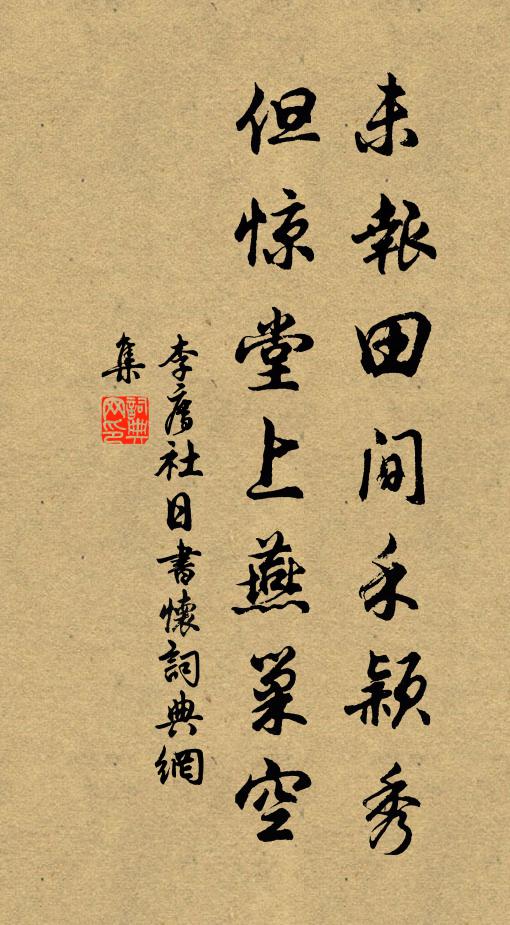 未報田间禾穎秀
但惊堂上燕巢空
李廌社日書懷詞典網
集
詞典
网印